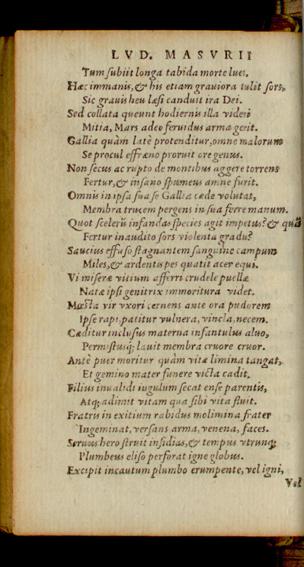 LVD. MASVRII
Tum subiit longa tabida morte lues.
Hæc immanis, & his etiam grauiora tulit sors,
Sic grauis heu læsi canduit ira Dei.
Sed collata queunt hodiernis illa videri
Mitia, Mars adeo feruidus arma gerit.
Gallia quàm latè protenditur, omne malorum
Se procul effræno proruit ore genus.
Non secus ac rupto de montibus aggere torrens
Fertur, & insano spumeus amne furit.
Omnis in ipsa sua se Gallia cæde volutat,
Membra trucem pergens in sua ferre manum.
Quot scelerũ infandas species agit impetus? & quã
Fertur inaudito sors violenta gradu?
Saucius effuso stagnantem sanguine campum
Miles, & ardentis per quatit acer equi.
Vi miseræ vitium afferri crudele puellæ
Nata ipsi genitrix immoritura videt.
Mœsta vir vxori cernens ante ora pudorem
Ipse rapi, patitur vulnera, vincla, necem.
Cæditur inclusus materna infantulus aluo,
Permistusq; lauit membra cruore cruor.
Antè puer moritur quàm vitæ limina tangat,
Et gemino mater funere victa cadit.
Filius inualidi iugulum secat ense parentis,
Atq; adimit vitam qua sibi vita fluit.
Fratris in exitium rabidus molimina frater
Ingeminat, versans arma, venena, faces.
Seruus hero struit insidias, & tempus vtrunq;
Plumbeus eliso perforat igne globus.
Excipit incautum plumbo erumpente, vel igni,
Vel